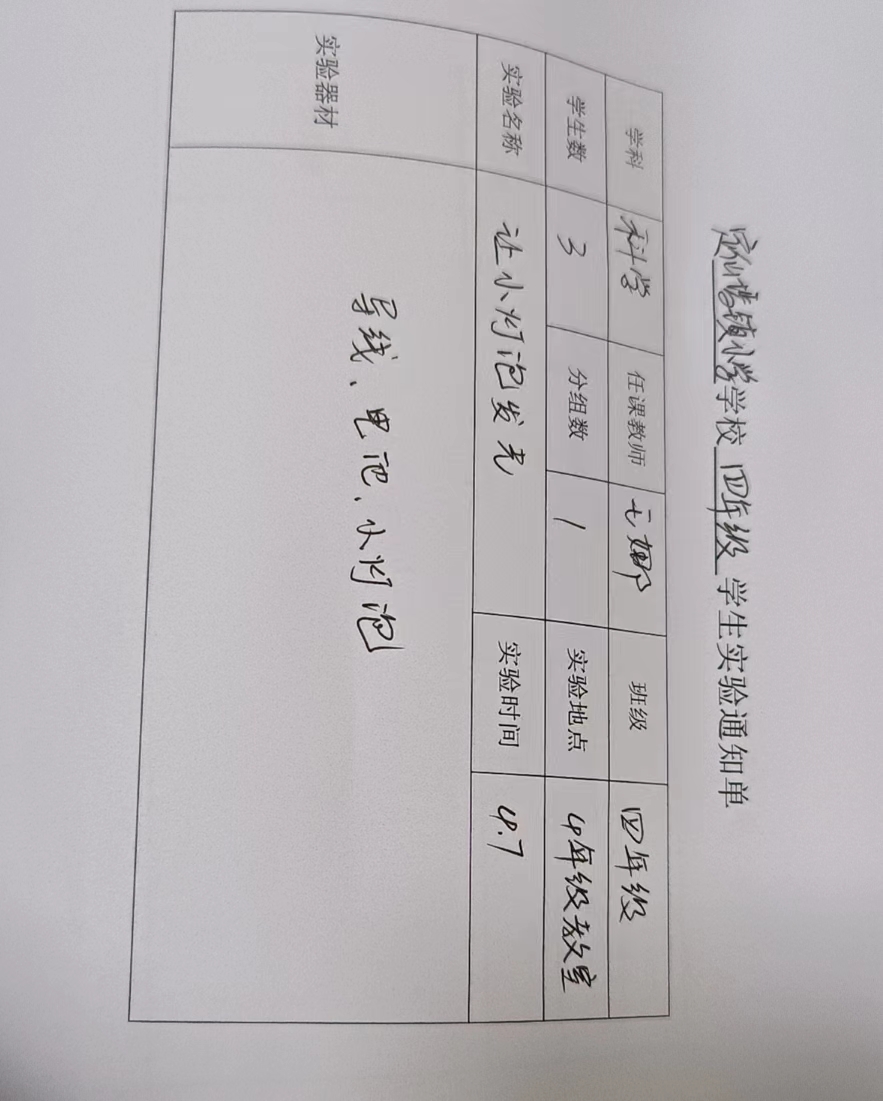 定仙墕镇小学学校 四年级 学生实验通知单
学科 科学 任课教师 班级 四年级
学生数 3 分组数 1 实验地点 4年级教室
实验名称 让小灯泡发光 实验时间 4.7
实验器材 导线、电池、小灯泡